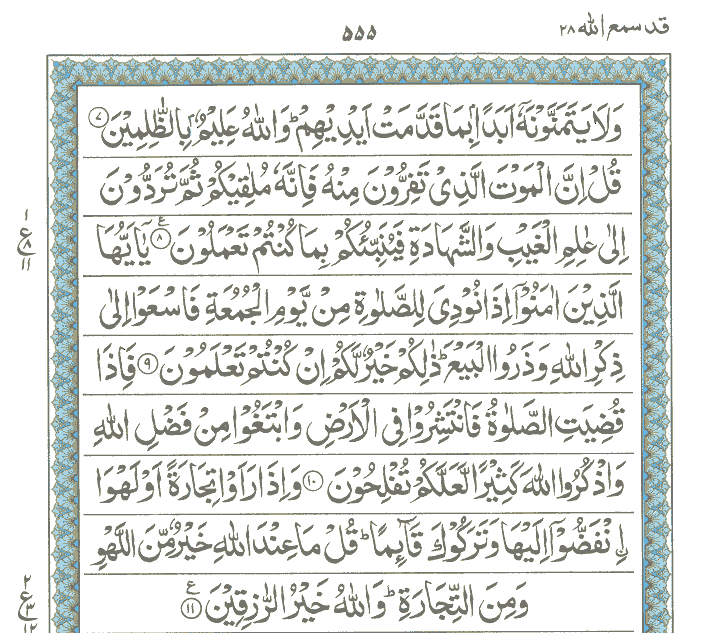 قد سمع الله ٢٨
٥٥٥
وَلَا يَتَمَنَّوْنَهٗۤ اَبَدًۢا بِمَا قَدَّمَتْ اَيْدِيْهِمْ ؕ وَاللّٰهُ عَلِيْمٌۢ بِالظّٰلِمِيْنَ ۝٧
قُلْ اِنَّ الْمَوْتَ الَّذِيْ تَفِرُّوْنَ مِنْهُ فَاِنَّهٗ مُلٰقِيْكُمْ ثُمَّ تُرَدُّوْنَ
اِلٰى عٰلِمِ الْغَيْبِ وَالشَّهَادَةِ فَيُنَبِّئُكُمْ بِمَا كُنْتُمْ تَعْمَلُوْنَ ۝٨ ع يٰۤاَيُّهَا
١
ع
٨
١١
الَّذِيْنَ اٰمَنُوْۤا اِذَا نُوْدِيَ لِلصَّلٰوةِ مِنْ يَّوْمِ الْجُمُعَةِ فَاسْعَوْا اِلٰى
ذِكْرِ اللّٰهِ وَذَرُوا الْبَيْعَ ؕ ذٰلِكُمْ خَيْرٌ لَّكُمْ اِنْ كُنْتُمْ تَعْلَمُوْنَ ۝٩ فَاِذَا
قُضِيَتِ الصَّلٰوةُ فَانْتَشِرُوْا فِي الْاَرْضِ وَابْتَغُوْا مِنْ فَضْلِ اللّٰهِ
وَاذْكُرُوا اللّٰهَ كَثِيْرًا لَّعَلَّكُمْ تُفْلِحُوْنَ ۝١٠ وَاِذَا رَاَوْا تِجَارَةً اَوْ لَهْوَا
ِ۟انْفَضُّوْۤا اِلَيْهَا وَتَرَكُوْكَ قَآئِمًا ؕ قُلْ مَا عِنْدَ اللّٰهِ خَيْرٌ مِّنَ اللَّهْوِ
وَمِنَ التِّجَارَةِ ؕ وَاللّٰهُ خَيْرُ الرّٰزِقِيْنَ ۝١١ ع
٢
ع
٣
١٢